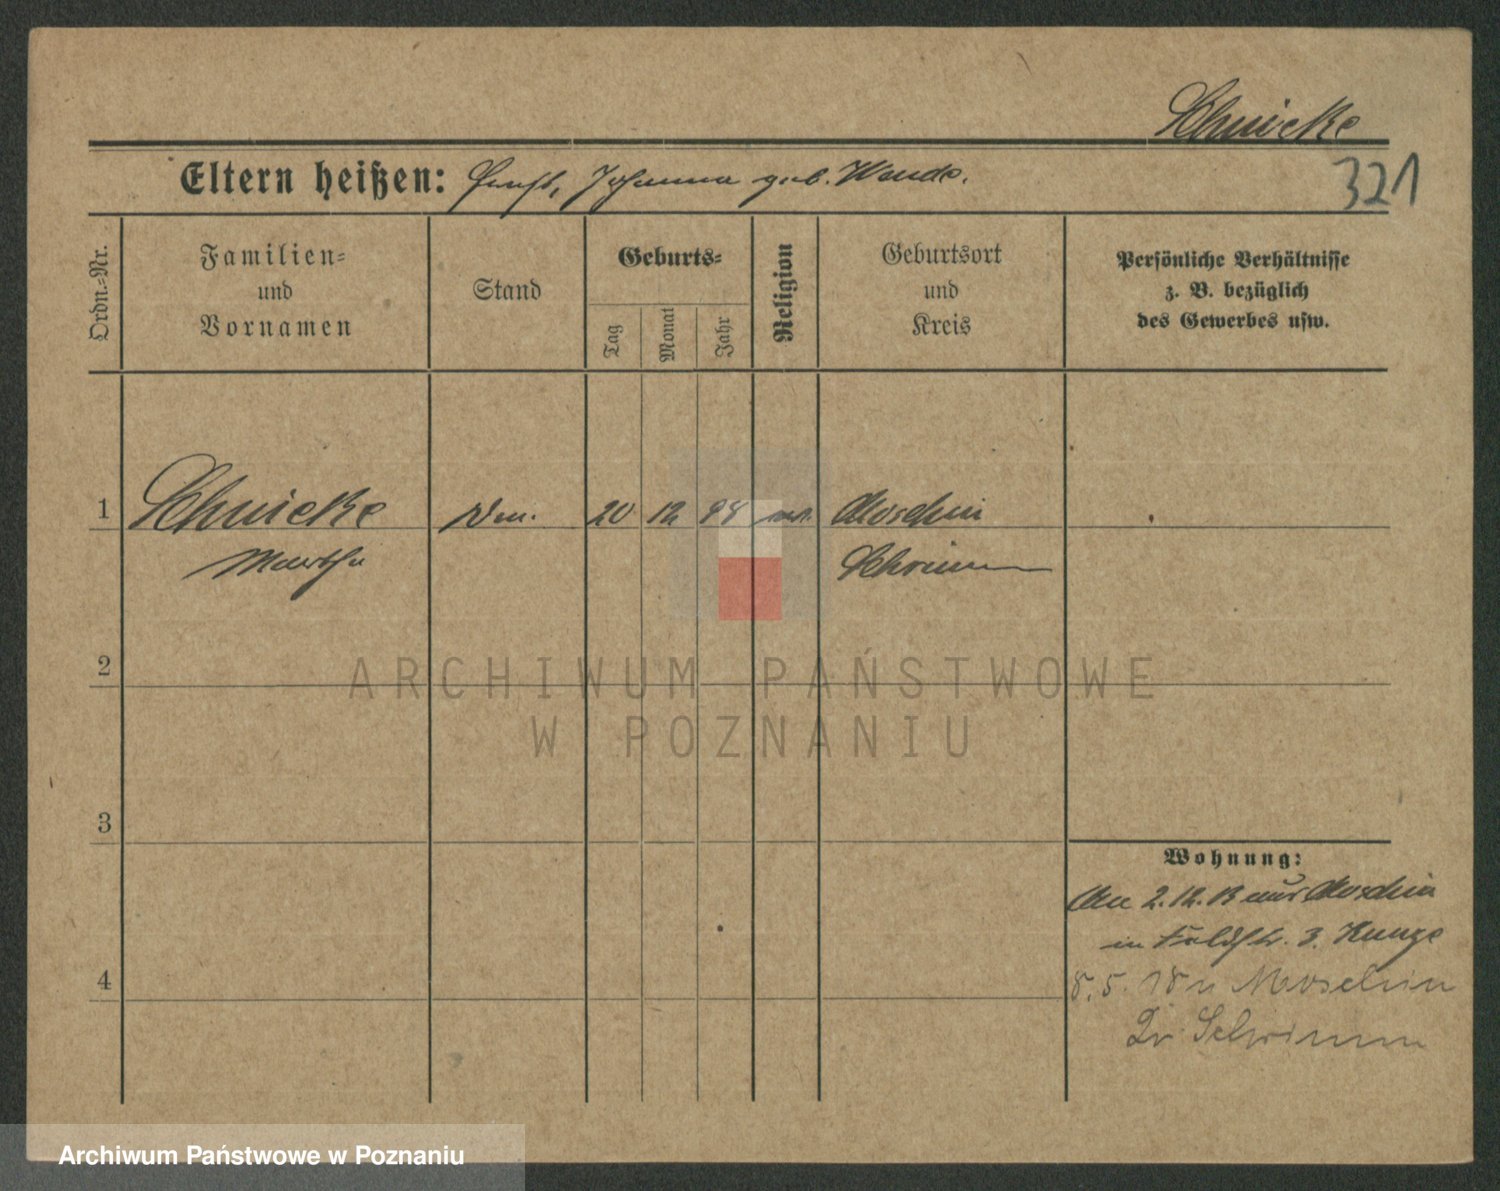 Schnicke
Eltern heißen: Ernst, Johanna geb. Wende.
321
Ordn.-Nr.
Familien-
und
Vornamen
Stand
Geburts-
Tag
Monat
Jahr
Religion
Geburtsort
und
Kreis
Persönliche Verhältnisse
z. B. bezüglich
des Gewerbes usw.
1 Schnicke 20 12 98 Moschin
Martha Schrimm
2
ARCHIWUM PAŃSTWOWE
W POZNANIU
3
Wohnung:
2. 12. 18 aus Moschin
in Feldstr. 3. Kunze
4
8. 5. 18 n Moschin
Kr Schrimm
Archiwum Państwowe w Poznaniu